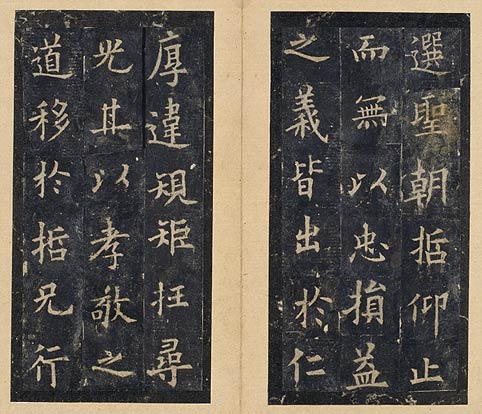 選聖朝哲仰止
而無以忠損益
之義皆出於仁
厚違規矩抂尋
光其以孝敬之
道移於哲兄行